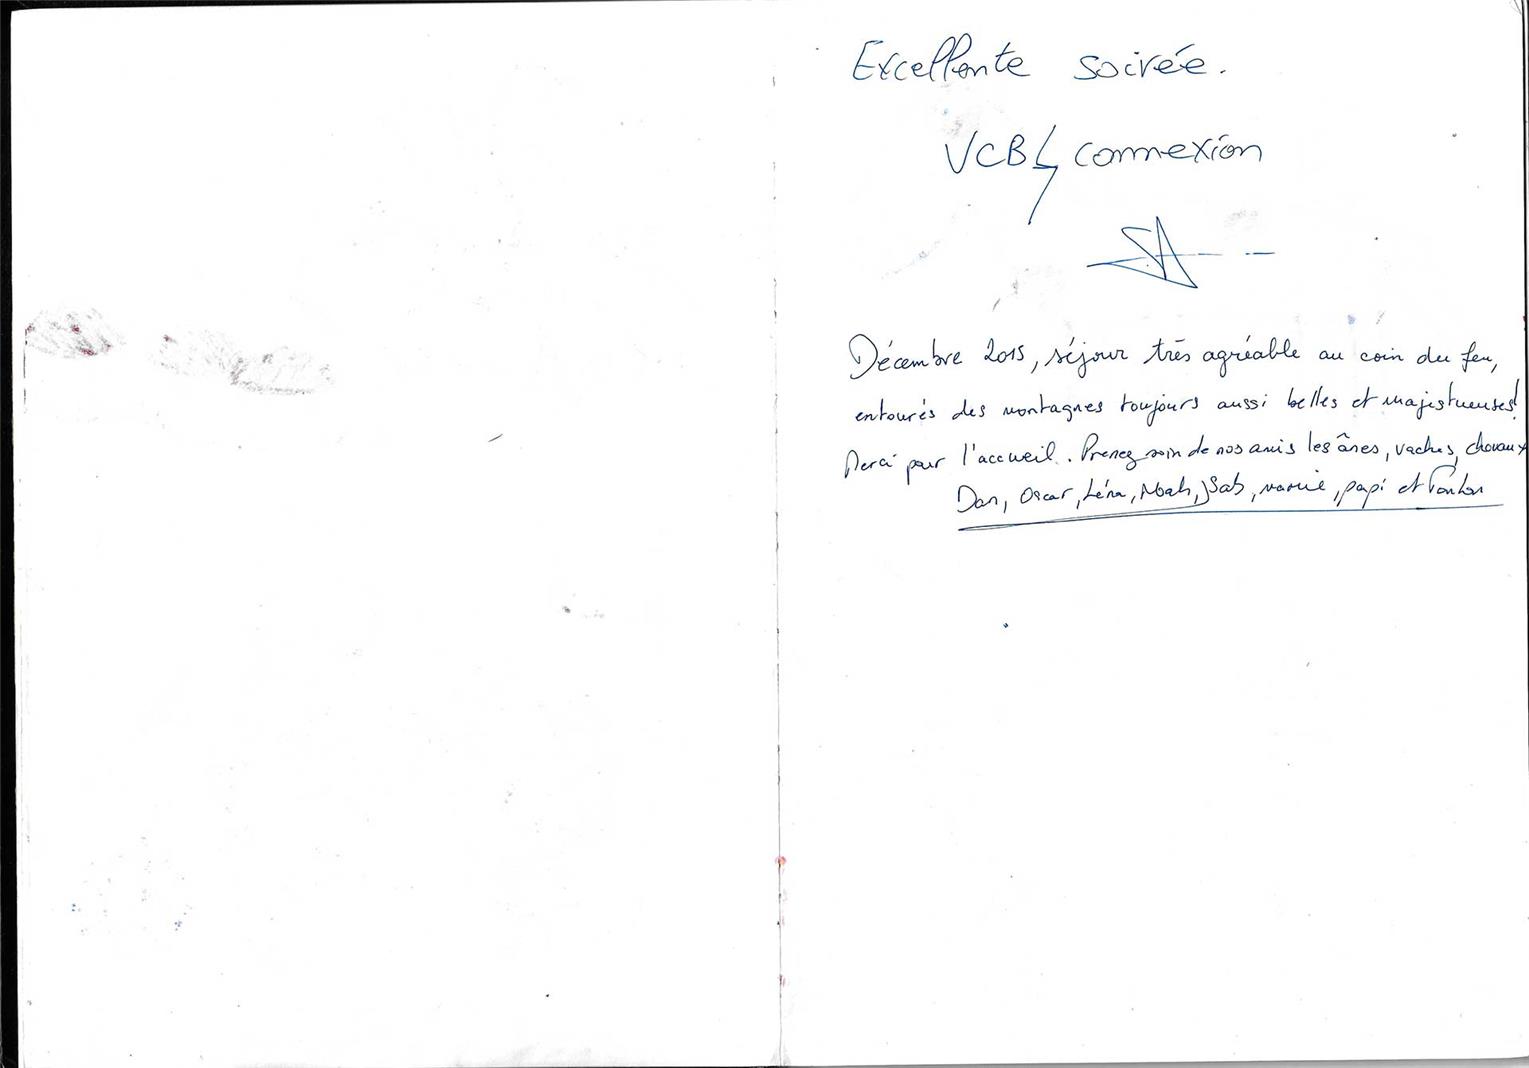 Excellente soirée.
VCB connexion
Décembre 2015, séjour très agréable au coin du feu,
entourés des montagnes toujours aussi belles et majestueuses!
Merci pour l'accueil. Prenez soin de nos amis les ânes, vaches, chevaux
Dan, Oscar, Léna, Noah, Sab, mamie, papi et